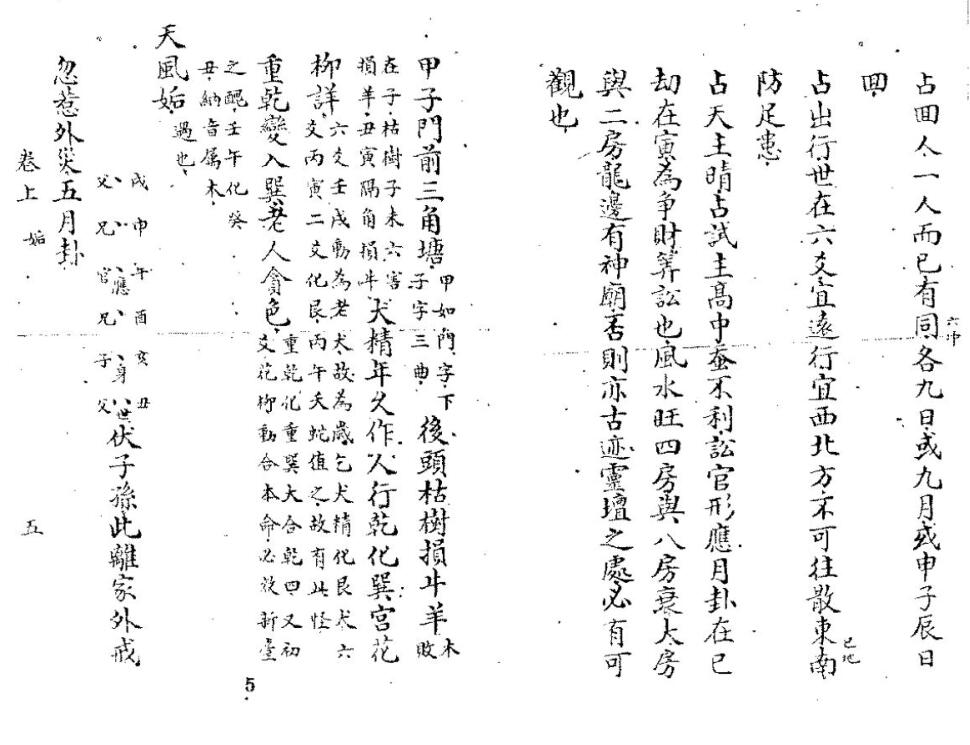 占囬人一人而已有同各九日或九月或申子辰日
囬
占出行世在六爻宜遠行宜西北方不可往散東南
巳地
防足患
占天主晴占試主高中蚕不利訟官形應月卦在巳
劫在寅為争財筭訟也風水旺四房與八房衰大房
與二房龍邊有神廟否則亦古迹靈壇之處必有可
觀也
六冲
甲子門前三角塘
甲如門字下
子字三曲
後頭枯樹損牛羊
木敗
在子枯樹子未六害
損羊丑寅隅角損牛
犬精年久作人行乾化巽宮花
柳詳
六爻壬戌動為老犬故為歲乞犬精化艮犬六
爻丙寅二爻化艮丙午夭蛇值之故有此怪
重乾變入巽老人貪色
重乾化重巽大合乾曰又初
爻花柳動合本命必效新臺
之醜壬午化癸
丑納音属木
天風姤
過也
戌申午酉亥丑
父兄官應兄子身父世
伏子孫此離家外戒
忽惹外災五月卦
卷上
姤
五
5